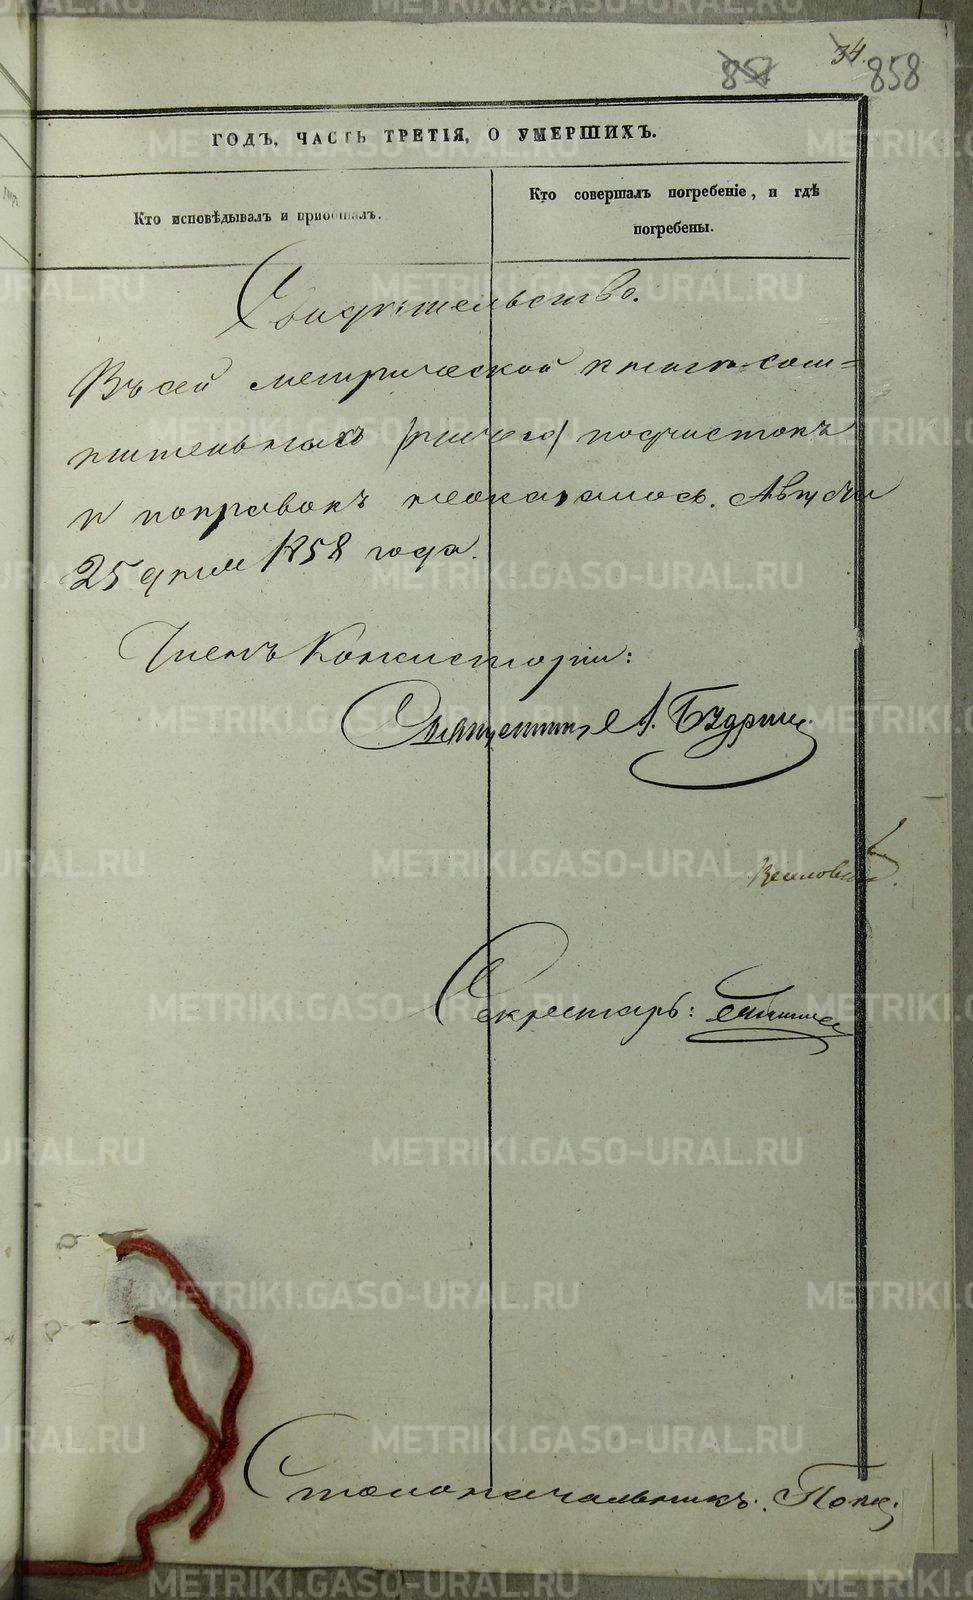 34.
857 858
ГОДЪ, ЧАСТЬ ТРЕТІЯ, О УМЕРШИХЪ.
Кто исповѣдывалъ и пріобщалъ.
Кто совершалъ погребеніе, и гдѣ
погребены.
Свидѣтельство.
Въ сей метрической книгѣ сом-
нительныхъ подчистокъ
и поправокъ неоказалось. Августа
25 дня 1858 года.
Членъ Консисторіи:
Священникъ А. Будрин
Секретарь:
Столоначальникъ: Попов
METRIKI.GASO-URAL.RU